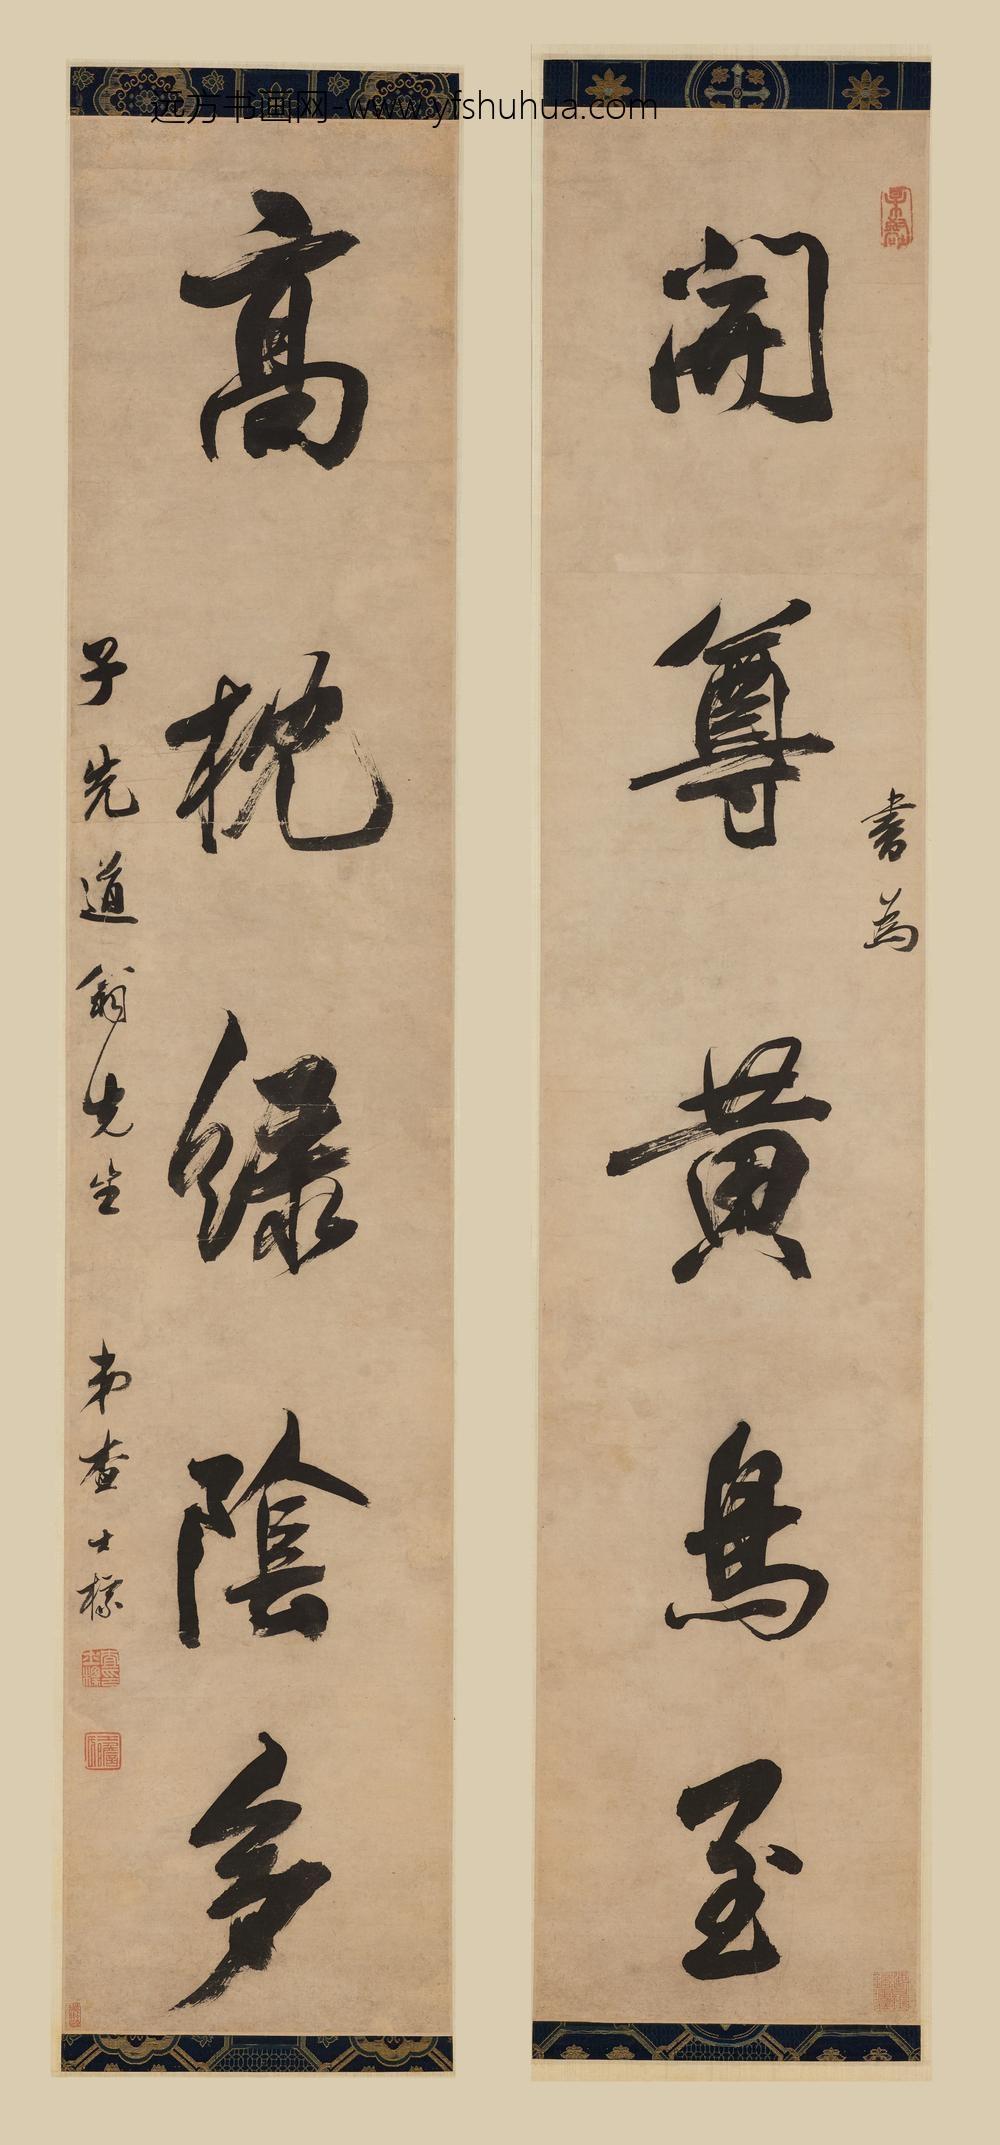 远方书画网-www.yfshuhua.com
書為
開尊黃鳥至
高枕綠陰多
子先道翁先生
弟查士標